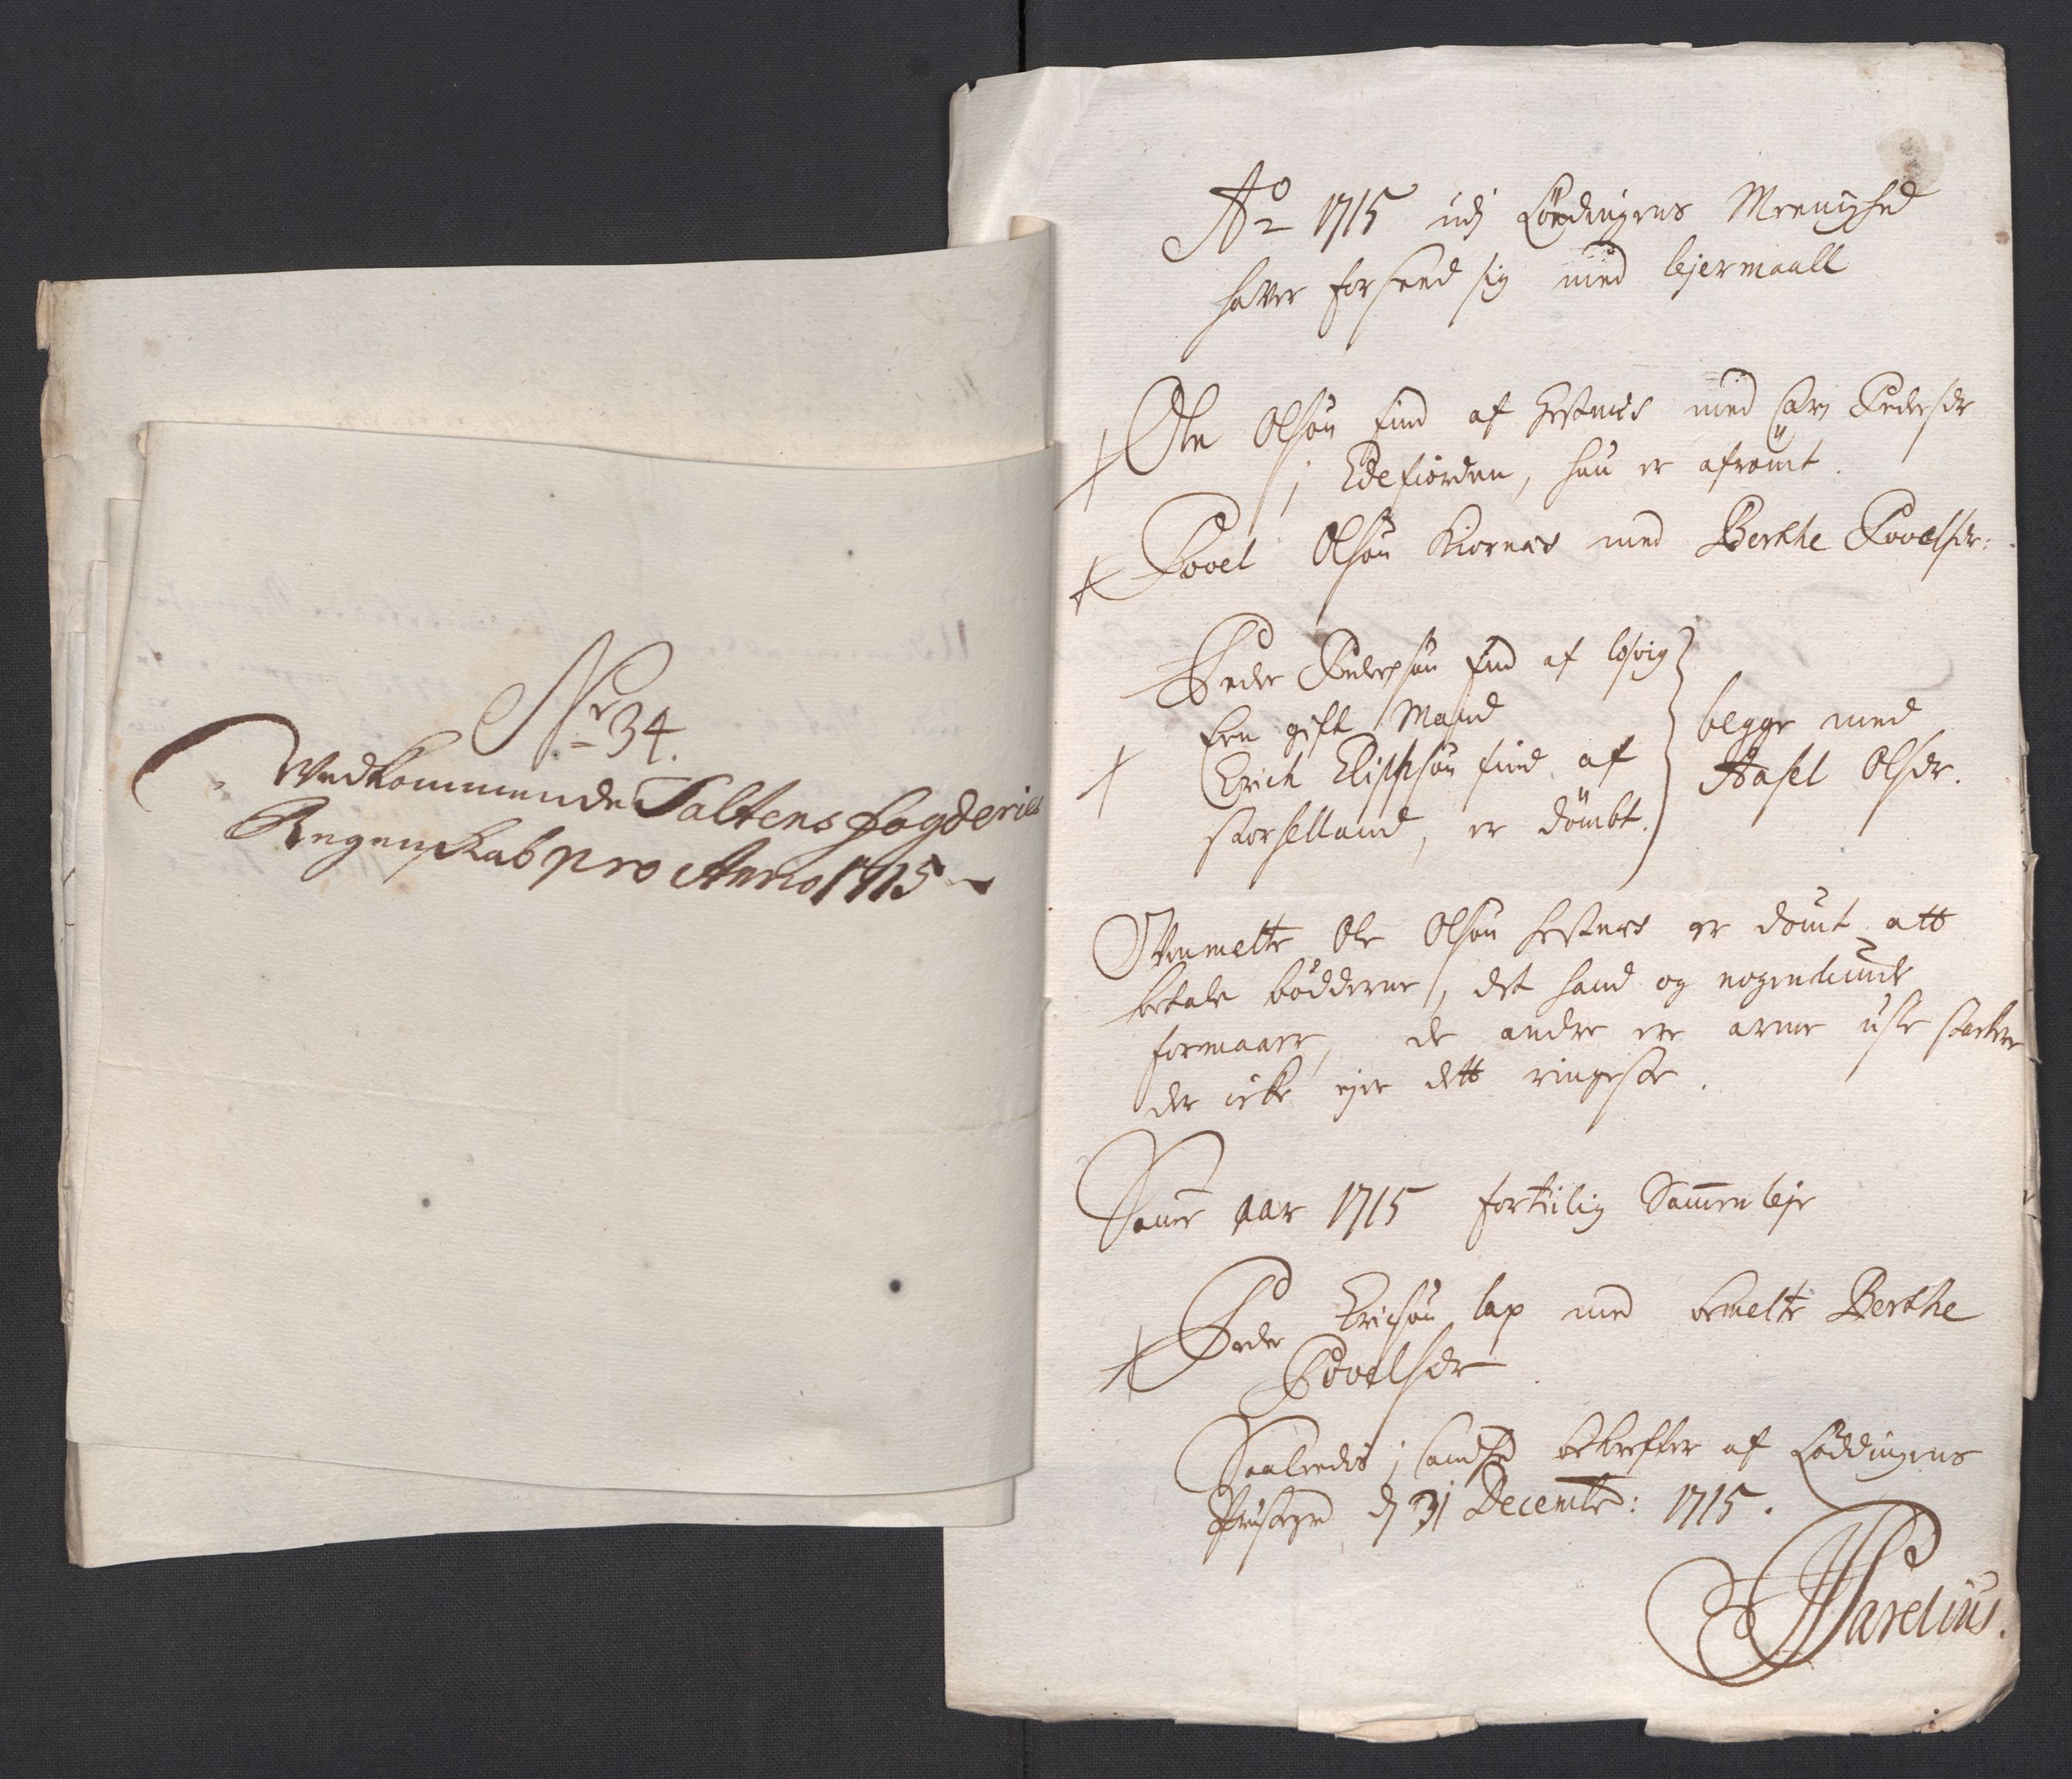 No 34.
Vedkommende Saltens fogderies
Regenskab pro Anno 1715
Ao 1715 udj Lødingens Meenighed
haver forseed sig med lejermaall
Ole Olsøn find af Hestnes med Cari Pedersdr
j Edefiorden, hun er afrømt.
Povel Olsøn Kiørnes med Berthe Povelsdr:
Peder Pedersøn find af
Een gift Mand
Erich Elissøn find af
Storselland, er dømbt.
begge med
Aasel Olsdr.
bemelte Ole Olsøn Hestnes er dømt att
betale bødderne, det hand og nogenlunde
formaar, de andre ere arme usle starkere
der icke ejer dett ringeste.
Samme aar 1715 fortiilig Sammenleje
Peder Erichsøn lap med bemelte Berthe
Povelsdr
Saaledis j Sandhed bekrefter af Løddingens
Præstegrd d 31 Decembr: 1715.